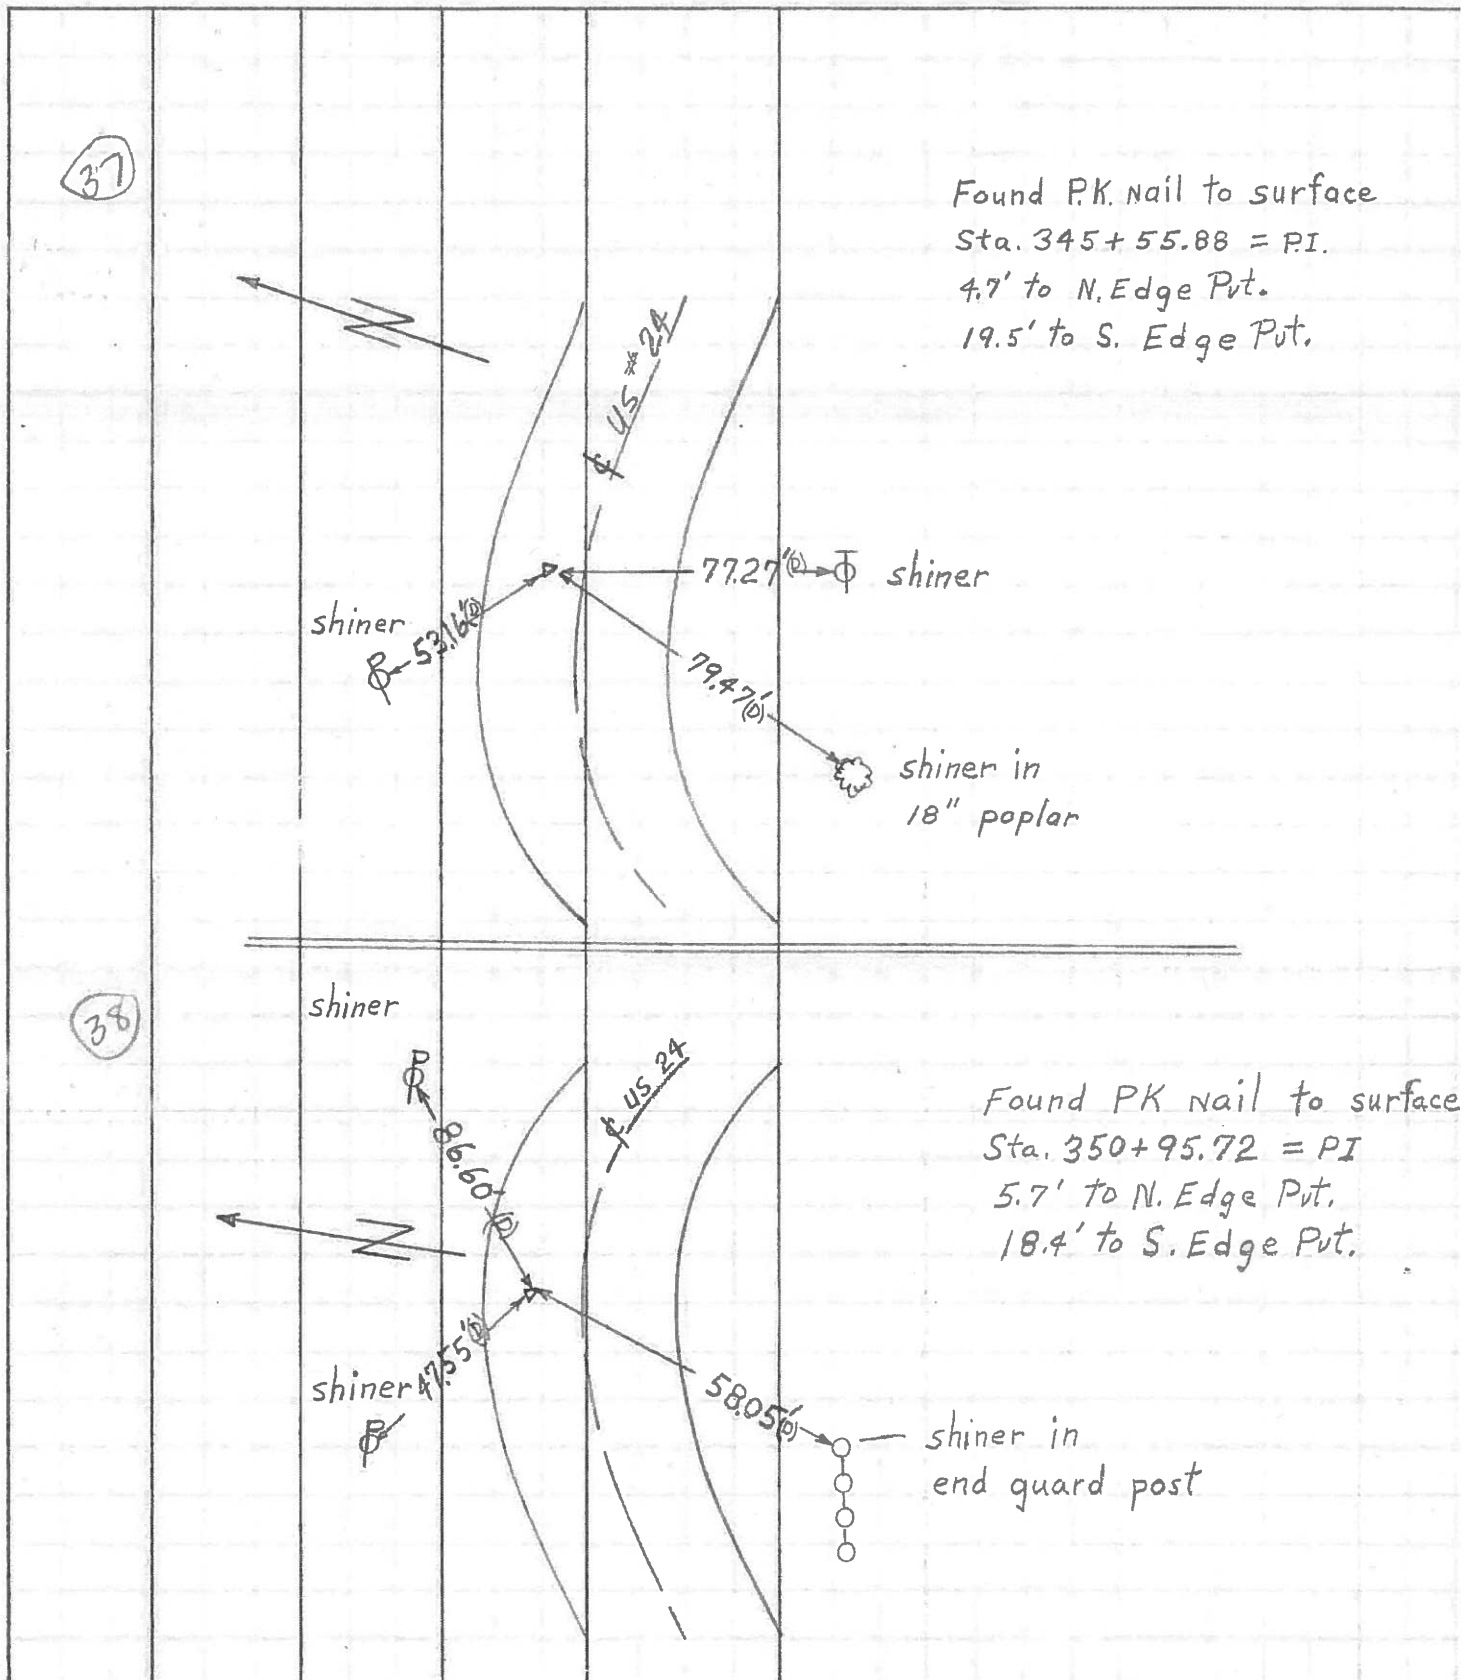 37
Found P.K. Nail to surface
Sta. 345+55.88 = P.I.
4.7' to N. Edge Pvt.
19.5' to S. Edge Pvt.
US #24
77.27' (D)
shiner
shiner
53.16' (D)
79.47' (D)
shiner in
18" poplar
38
shiner
US 24
86.60' (D)
Found PK Nail to surface
Sta. 350+95.72 = PI
5.7' to N. Edge Pvt.
18.4' to S. Edge Pvt.
shiner
47.55' (D)
58.05' (D)
shiner in
end guard post